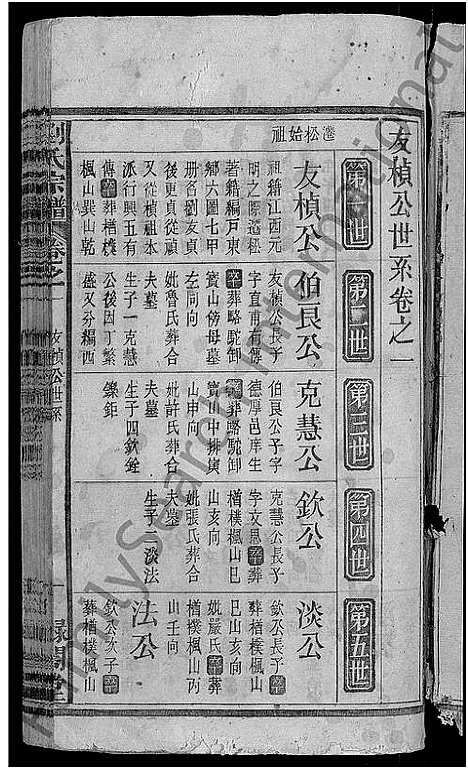 友楨公世系卷之一
第一世
第二世
第三世
第四世
第五世
遷松始祖
友楨公
祖籍江西元
明之際遷松
著籍編戶東
鄉六圖七甲
冊名劉友貞
後更貞從禎
又從楨祖本
派行興五有
傳 葬楢樸
楓山巽山乾
伯良公
友楨公長子
字直甫行傳
葬略駝卸
寶山傍母墓
左同向
妣魯氏葬合
夫墓
生子一克慧
公後因丁繁
盛又分編西
克慧公
伯良公子字
德厚邑庠生
葬略駝卸
寶山中排寅
山申向
妣許氏葬合
夫墓
生子四欽銓
鑠鉅
欽公
克慧公長子
字文思 葬
楢樸楓山巳
山亥向
妣張氏葬合
夫墓
生子二淡法
淡公
欽公長子
葬楢樸楓山
巳山亥向
妣嚴氏 葬
楢樸楓山丙
山壬向
法公
欽公次子
葬楢樸楓山
劉氏宗譜
卷之一
友楨公世系
一
FamilySearch International